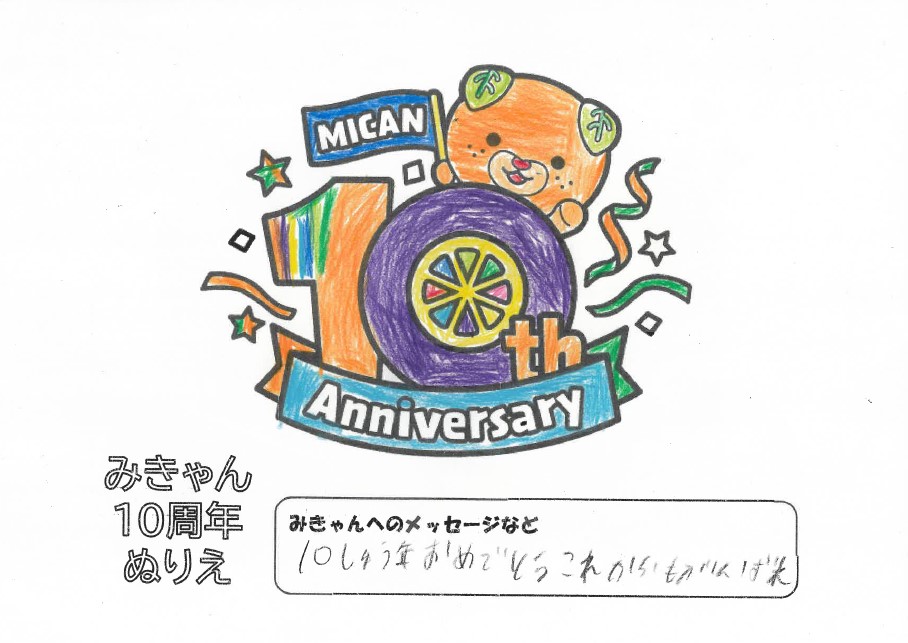 MICAN
10th
Anniversary
みきゃん
10周年
ぬりえ
みきゃんへのメッセージなど
10しゅう年おめでとうこれからもがんばれ